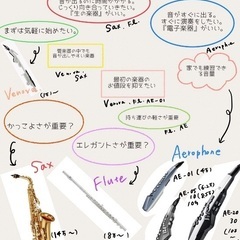 音が出るのに時間がかかる。
じっくり向き合っていきたい。
「生の楽器」がいい。
Sax, F.L.
音がすぐに出る。
すぐに演奏をしたい。
「電子楽器」がいい。
Aerophone
まずは気軽に始めたい。
管楽器の中でも
音が出しやすい楽器
Venova
Sax
家でも練習できる
る音量
最初の楽器の
お値段を抑えたい
Venova
AE-01
Venova
かっこよさが重要?
持ち運びの軽さが重要
FL. AE
エレガントさが重要?
Sax
Flute
Aerophone
AE-01
AE-05
AE-20
AE-30